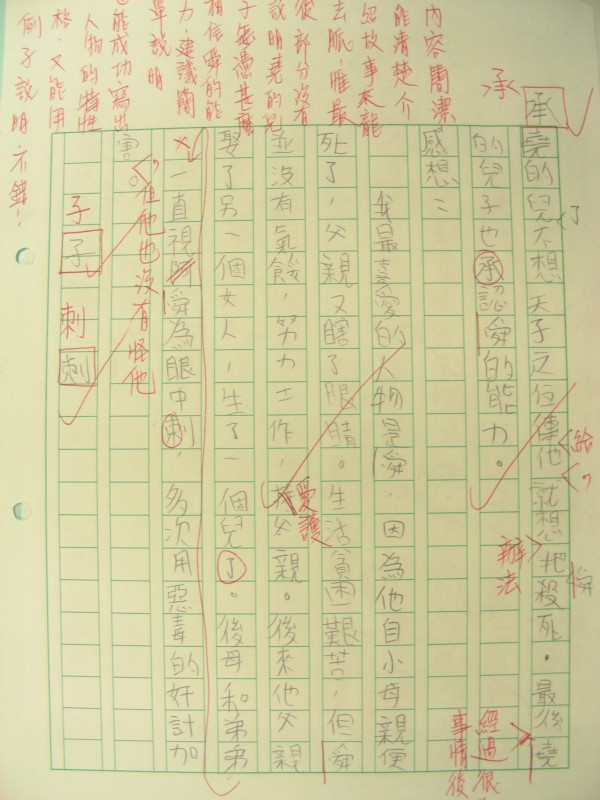 堯的兒不想天子之位傳他就想把殺死。最後堯
的兒子也承認舜的能力。
感想：
我最喜愛的人物是舜，因為他自小母親便
死了，父親又瞎了眼睛。生活貧困艱苦，但舜
並沒有氣餒，努力工作，父親。後來他父親
娶了另一個女人，生了一個兒了。後母和弟弟
一直視舜為眼中刺，多次用惡毒的奸計加
害。
承
承
了
給，
辦法
舜
經過很
事情後
愛護
，但他也沒有怪他
子子刺刺
內容簡潔
能清楚介
紹故事來龍
去脈，惟最
後部分沒有
說明堯的兒
子怎憑甚麼
相信舜的能
力，建議簡
單說明
能成功寫出
人物的特性
格，又能用
例子說明，不錯！